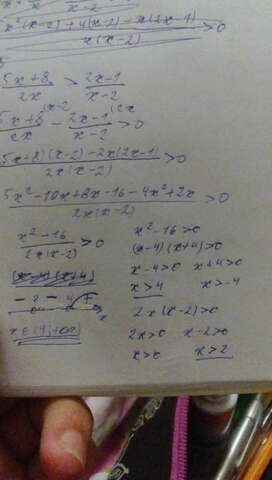 x²(x-2)+4(x-2)-x(2x-1) / x(x-2) > 0
5x+8 / 2x > 2x-1 / x-2
5x+8 / 2x (x-2 - 2x-1 / x-2 (2x > 0
5x+8)(x-2)-2x(2x-1) / 2x(x-2) > 0
5x²-10x+8x-16-4x²+2x / 2x(x-2) > 0
x²-16 / 2x(x-2) > 0
x²-16>0
(x-4)(x+4)>0
x-4>0 x+4>0
x>4 x>-4
2x(x-2)>0
2x>0 x-2>0
x>0 x>2
(x-4)(x+4)
- 2 - 4 + x
x∈(4;+∞)